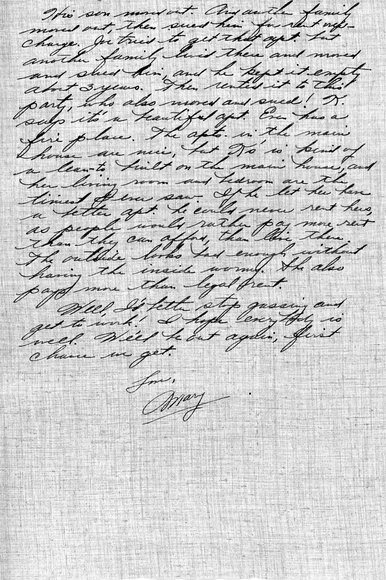 His son moved out. Another family
moved out, then sued him for rent over-
charge. Joe tried to get that apt. but
another family lived there and moved
and sued him, and he kept it empty
about 3 years. Then rented it to this
party, who also moved and sued! K.
says it's a beautiful apt. Even has a
fire place. The apts. in the main
house are nice, but K's is kind of
a lean-to, built on the main house, and
her living room and bedroom are the
tiniest I ever saw. If he let her have
a better apt. he could never rent hers,
as people would rather pay more rent
than they can afford, than live there.
The outside looks bad enough without
having the inside worse. She also
pays more than legal rent.
Well, I'd better stop gassing and
get to work. I hope everybody is
well. We'll be out again, first
chance we get.
Love,
Mary